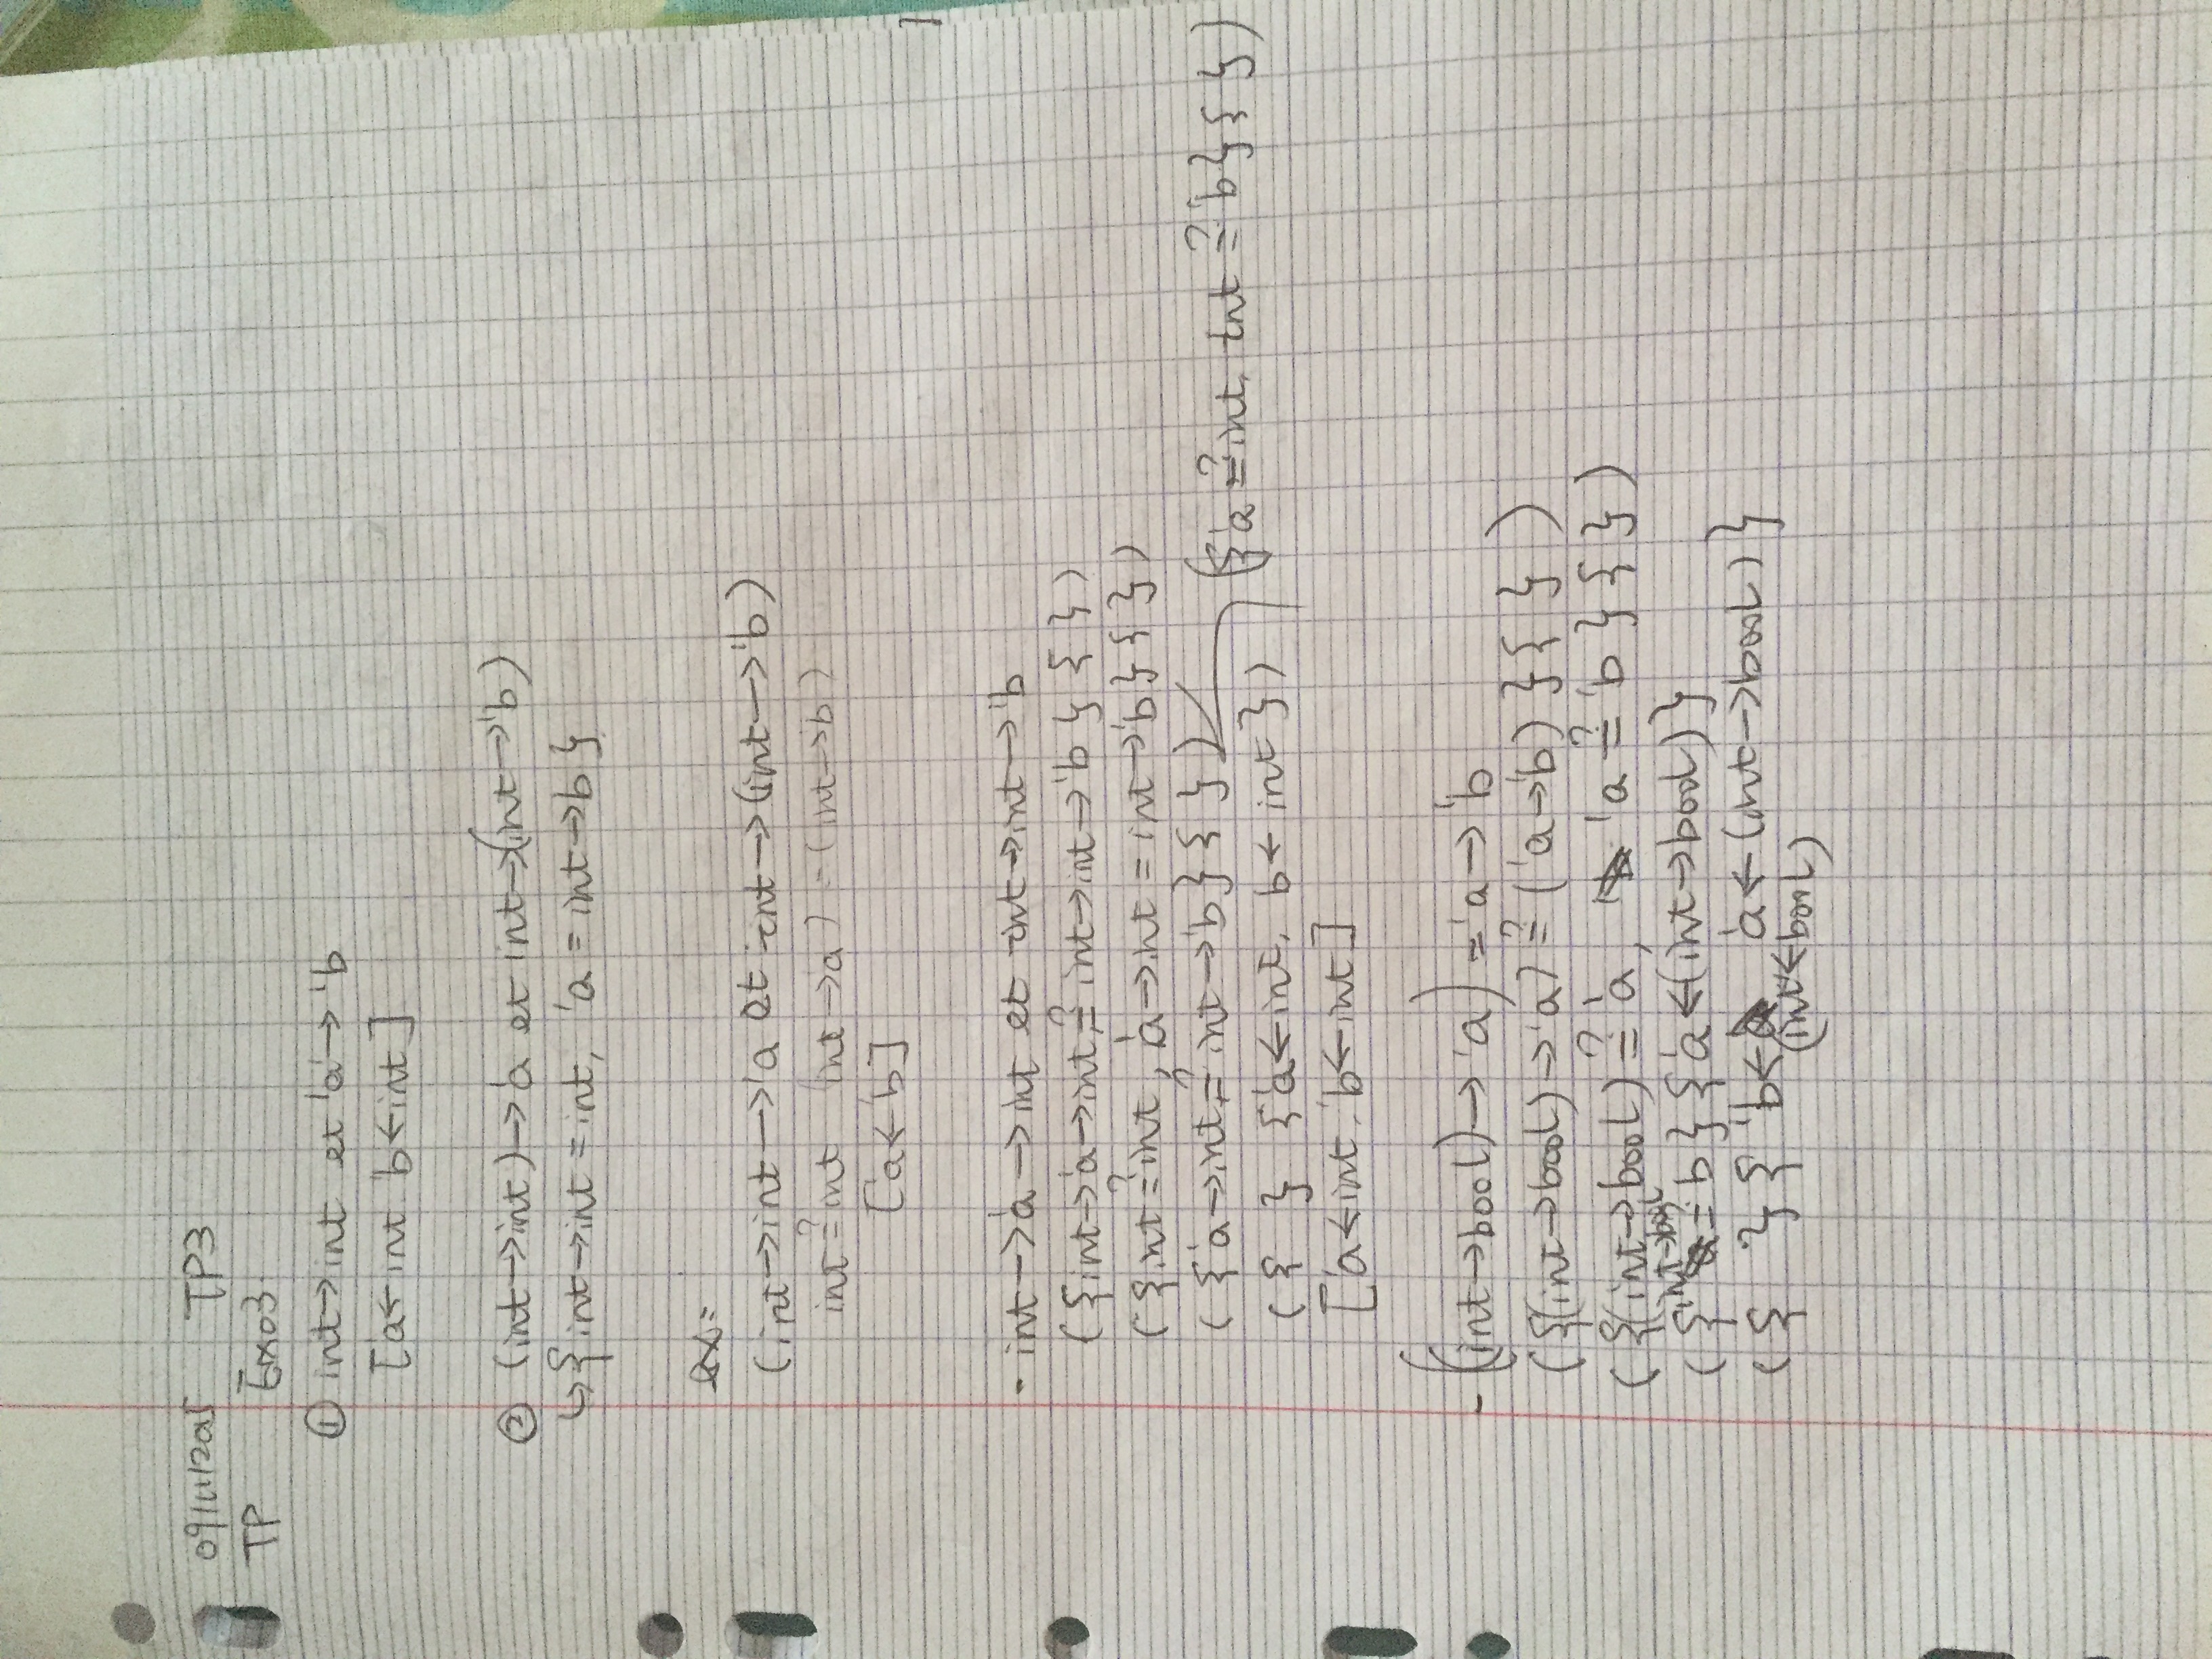 09/11/2015 TP3
TP Exo3
① int→int et 'a→'b
['a←int. 'b←int]
② (int→int)→'a et int→(int→'b)
↳ {int→int = int, 'a = int→b}
ex:
(int→int→'a et int→(int→'b)
int ≟ int (int→a) = (int→b)
[a←'b]
- int→'a→int et int→int→'b
({int→'a→int ≟ int→int→'b} { })
({int ≟ int, 'a→int = int→'b} { })
({'a→int ≟ int→'b} { }) ({'a ≟ int, int ≟ 'b} { })
({ } {'a←int, b←int})
['a←int. 'b←int]
- ((int→bool)→'a) = 'a→'b
({(int→bool)→'a) ≟ ('a→'b)} { })
({(int→bool) ≟ 'a, 'a ≟ 'b} { })
({int→bool = b} {'a←(int→bool)}
({ } {'b← 'a←(int→bool)}
(int←bool)